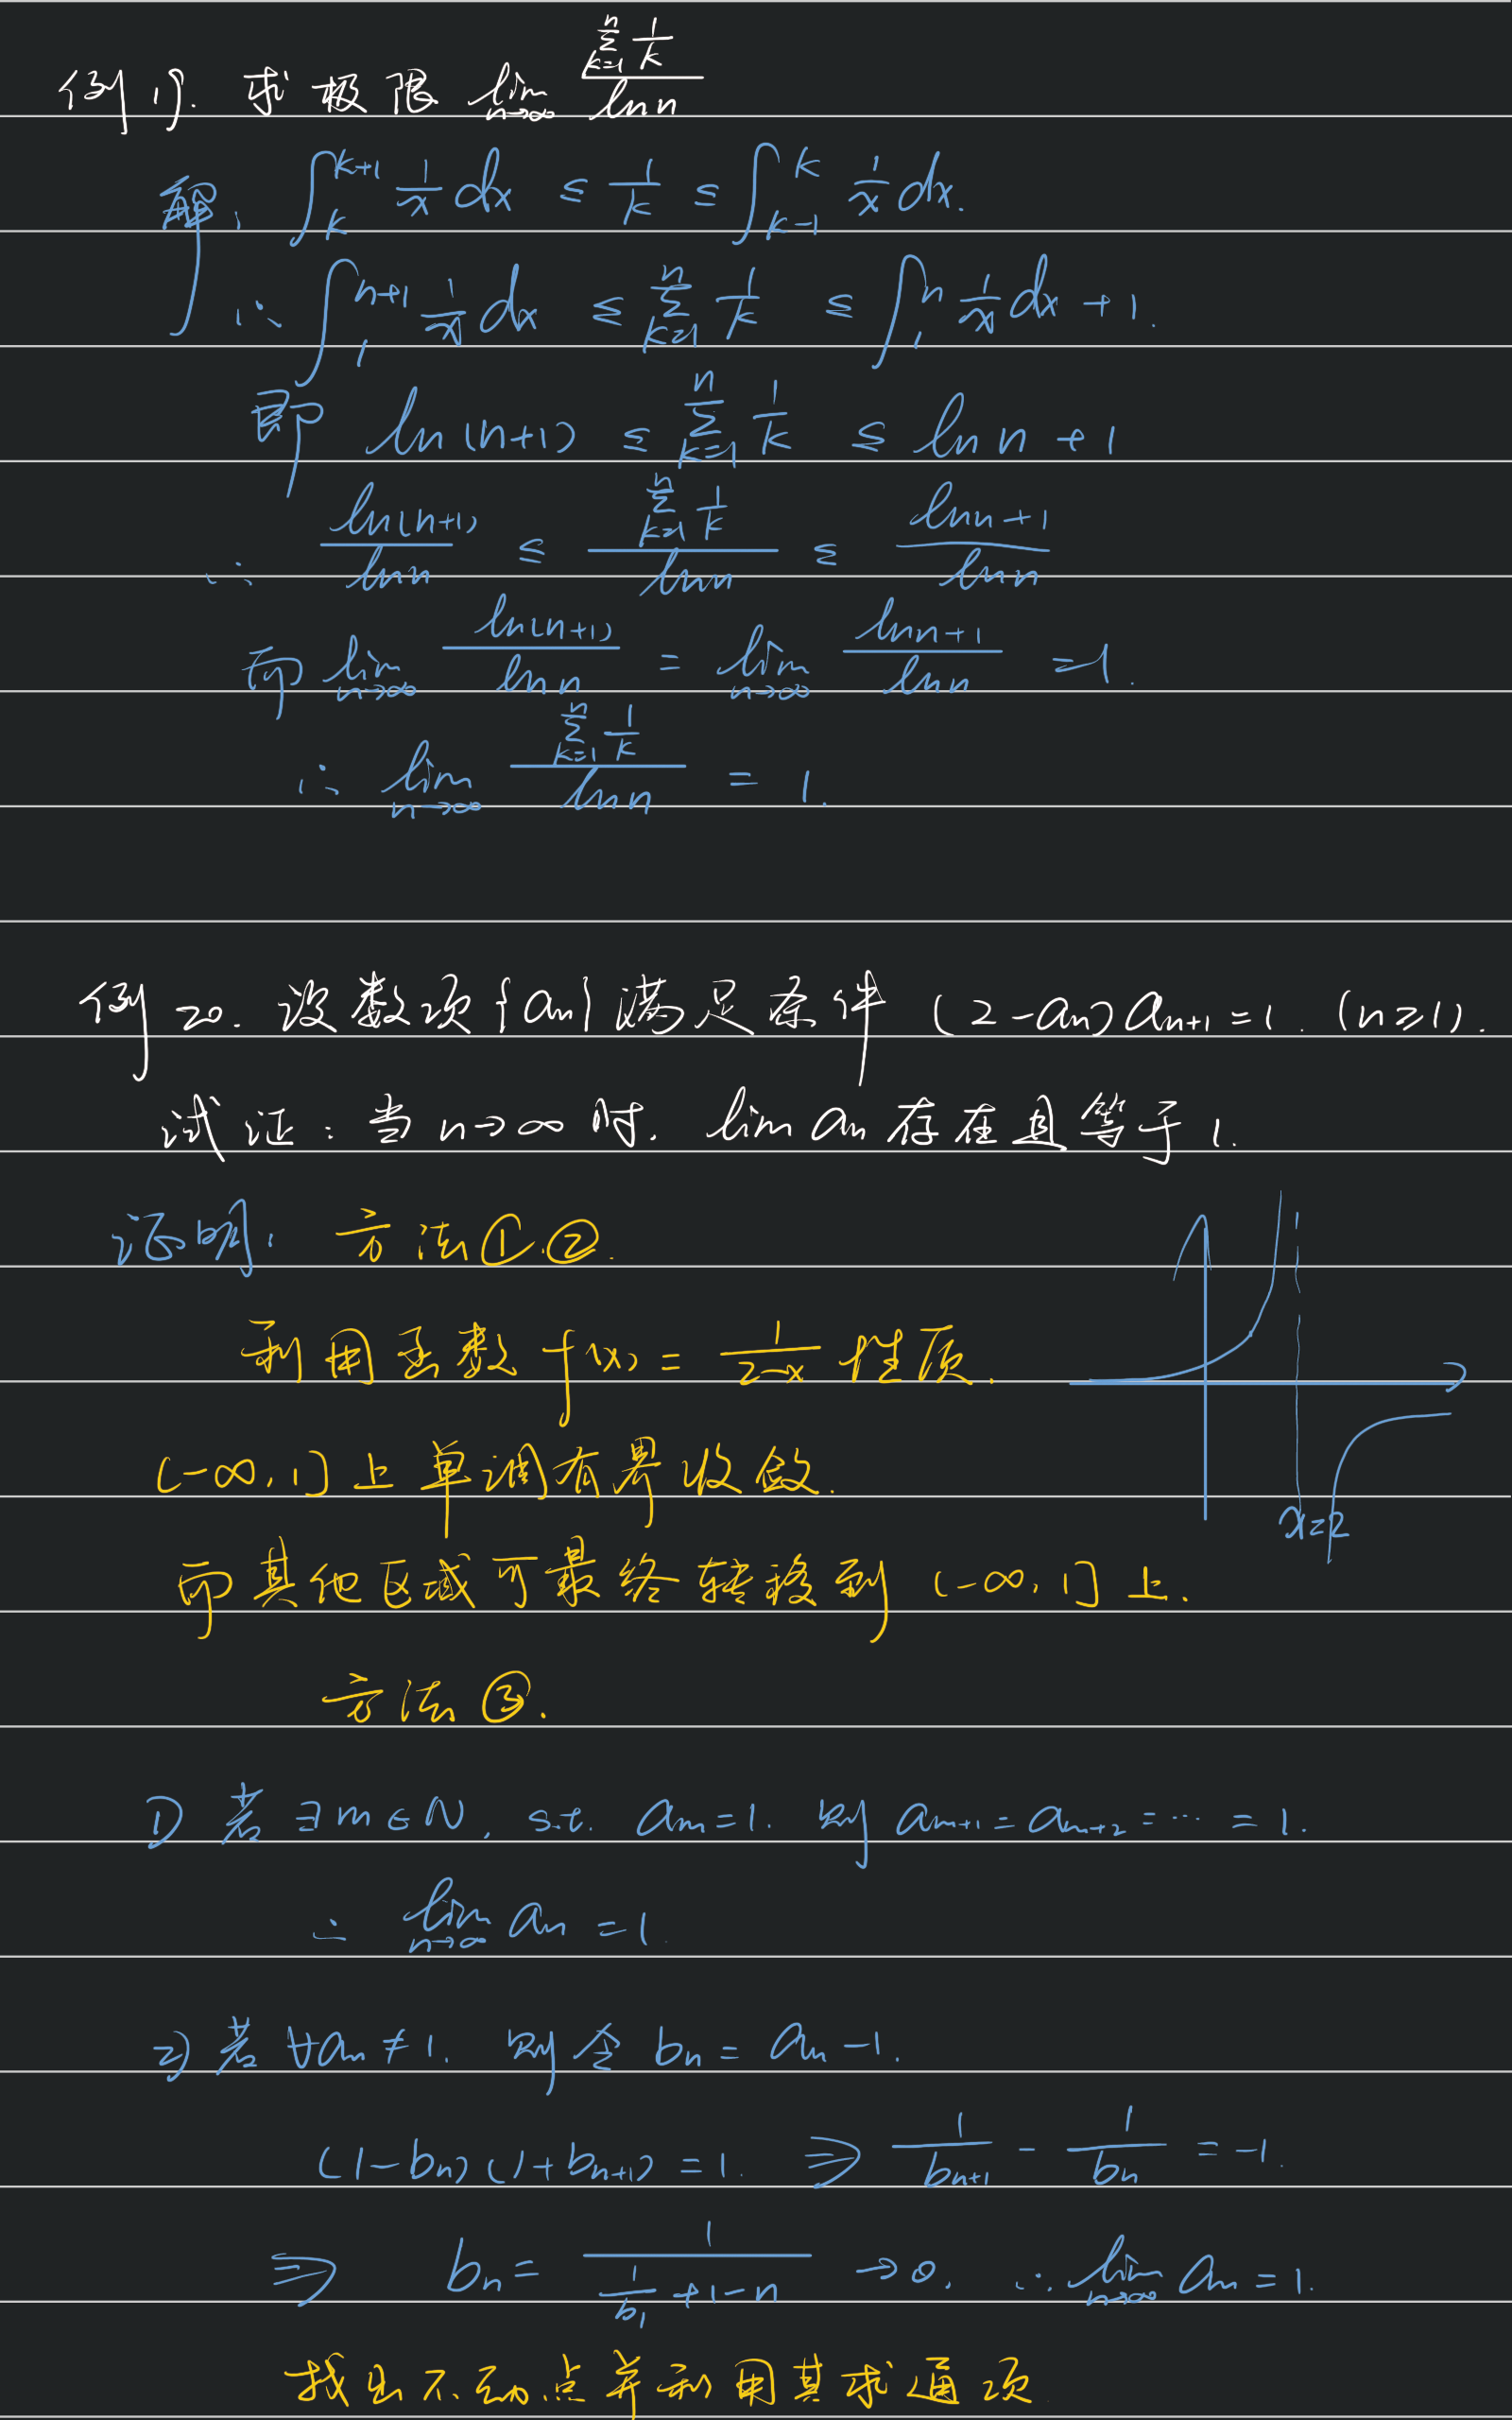 例19. 求极限 lim_{n→∞} (∑_{k=1}^{n} 1/k) / ln n
解: ∫_k^{k+1} 1/x dx ≤ 1/k ≤ ∫_{k-1}^k 1/x dx.
∴ ∫_1^{n+1} 1/x dx ≤ ∑_{k=1}^{n} 1/k ≤ ∫_1^n 1/x dx + 1.
即 ln(n+1) ≤ ∑_{k=1}^{n} 1/k ≤ ln n + 1
∴ ln(n+1)/ln n ≤ (∑_{k=1}^{n} 1/k)/ln n ≤ (ln n + 1)/ln n
而 lim_{n→∞} ln(n+1)/ln n = lim_{n→∞} (ln n + 1)/ln n = 1.
∴ lim_{n→∞} (∑_{k=1}^{n} 1/k)/ln n = 1.
例20. 设数项{an}满足条件 (2-an)a_{n+1}=1. (n≥1).
试证: 当n→∞时. lim an 存在且等于1.
证明: 方法①.②.
利用函数 f(x) = 1/(2-x) 性质.
(-∞,1]上单调有界收敛.
x=2
而其他区域可最终转移到(-∞,1]上.
方法③.
1) 若∃m∈N, s.t. am=1. 则 a_{m+1}=a_{m+2}=⋯=1.
∴ lim_{n→∞} an = 1.
2) 若∀an≠1. 则令 bn = an-1.
(1-bn)(1+b_{n+1})=1. ⇒ 1/b_{n+1} - 1/bn = -1.
⇒ bn = 1/(1/b1 + 1 - n) → 0. ∴ lim_{n→∞} an = 1.
找出不动点并利用其求通项